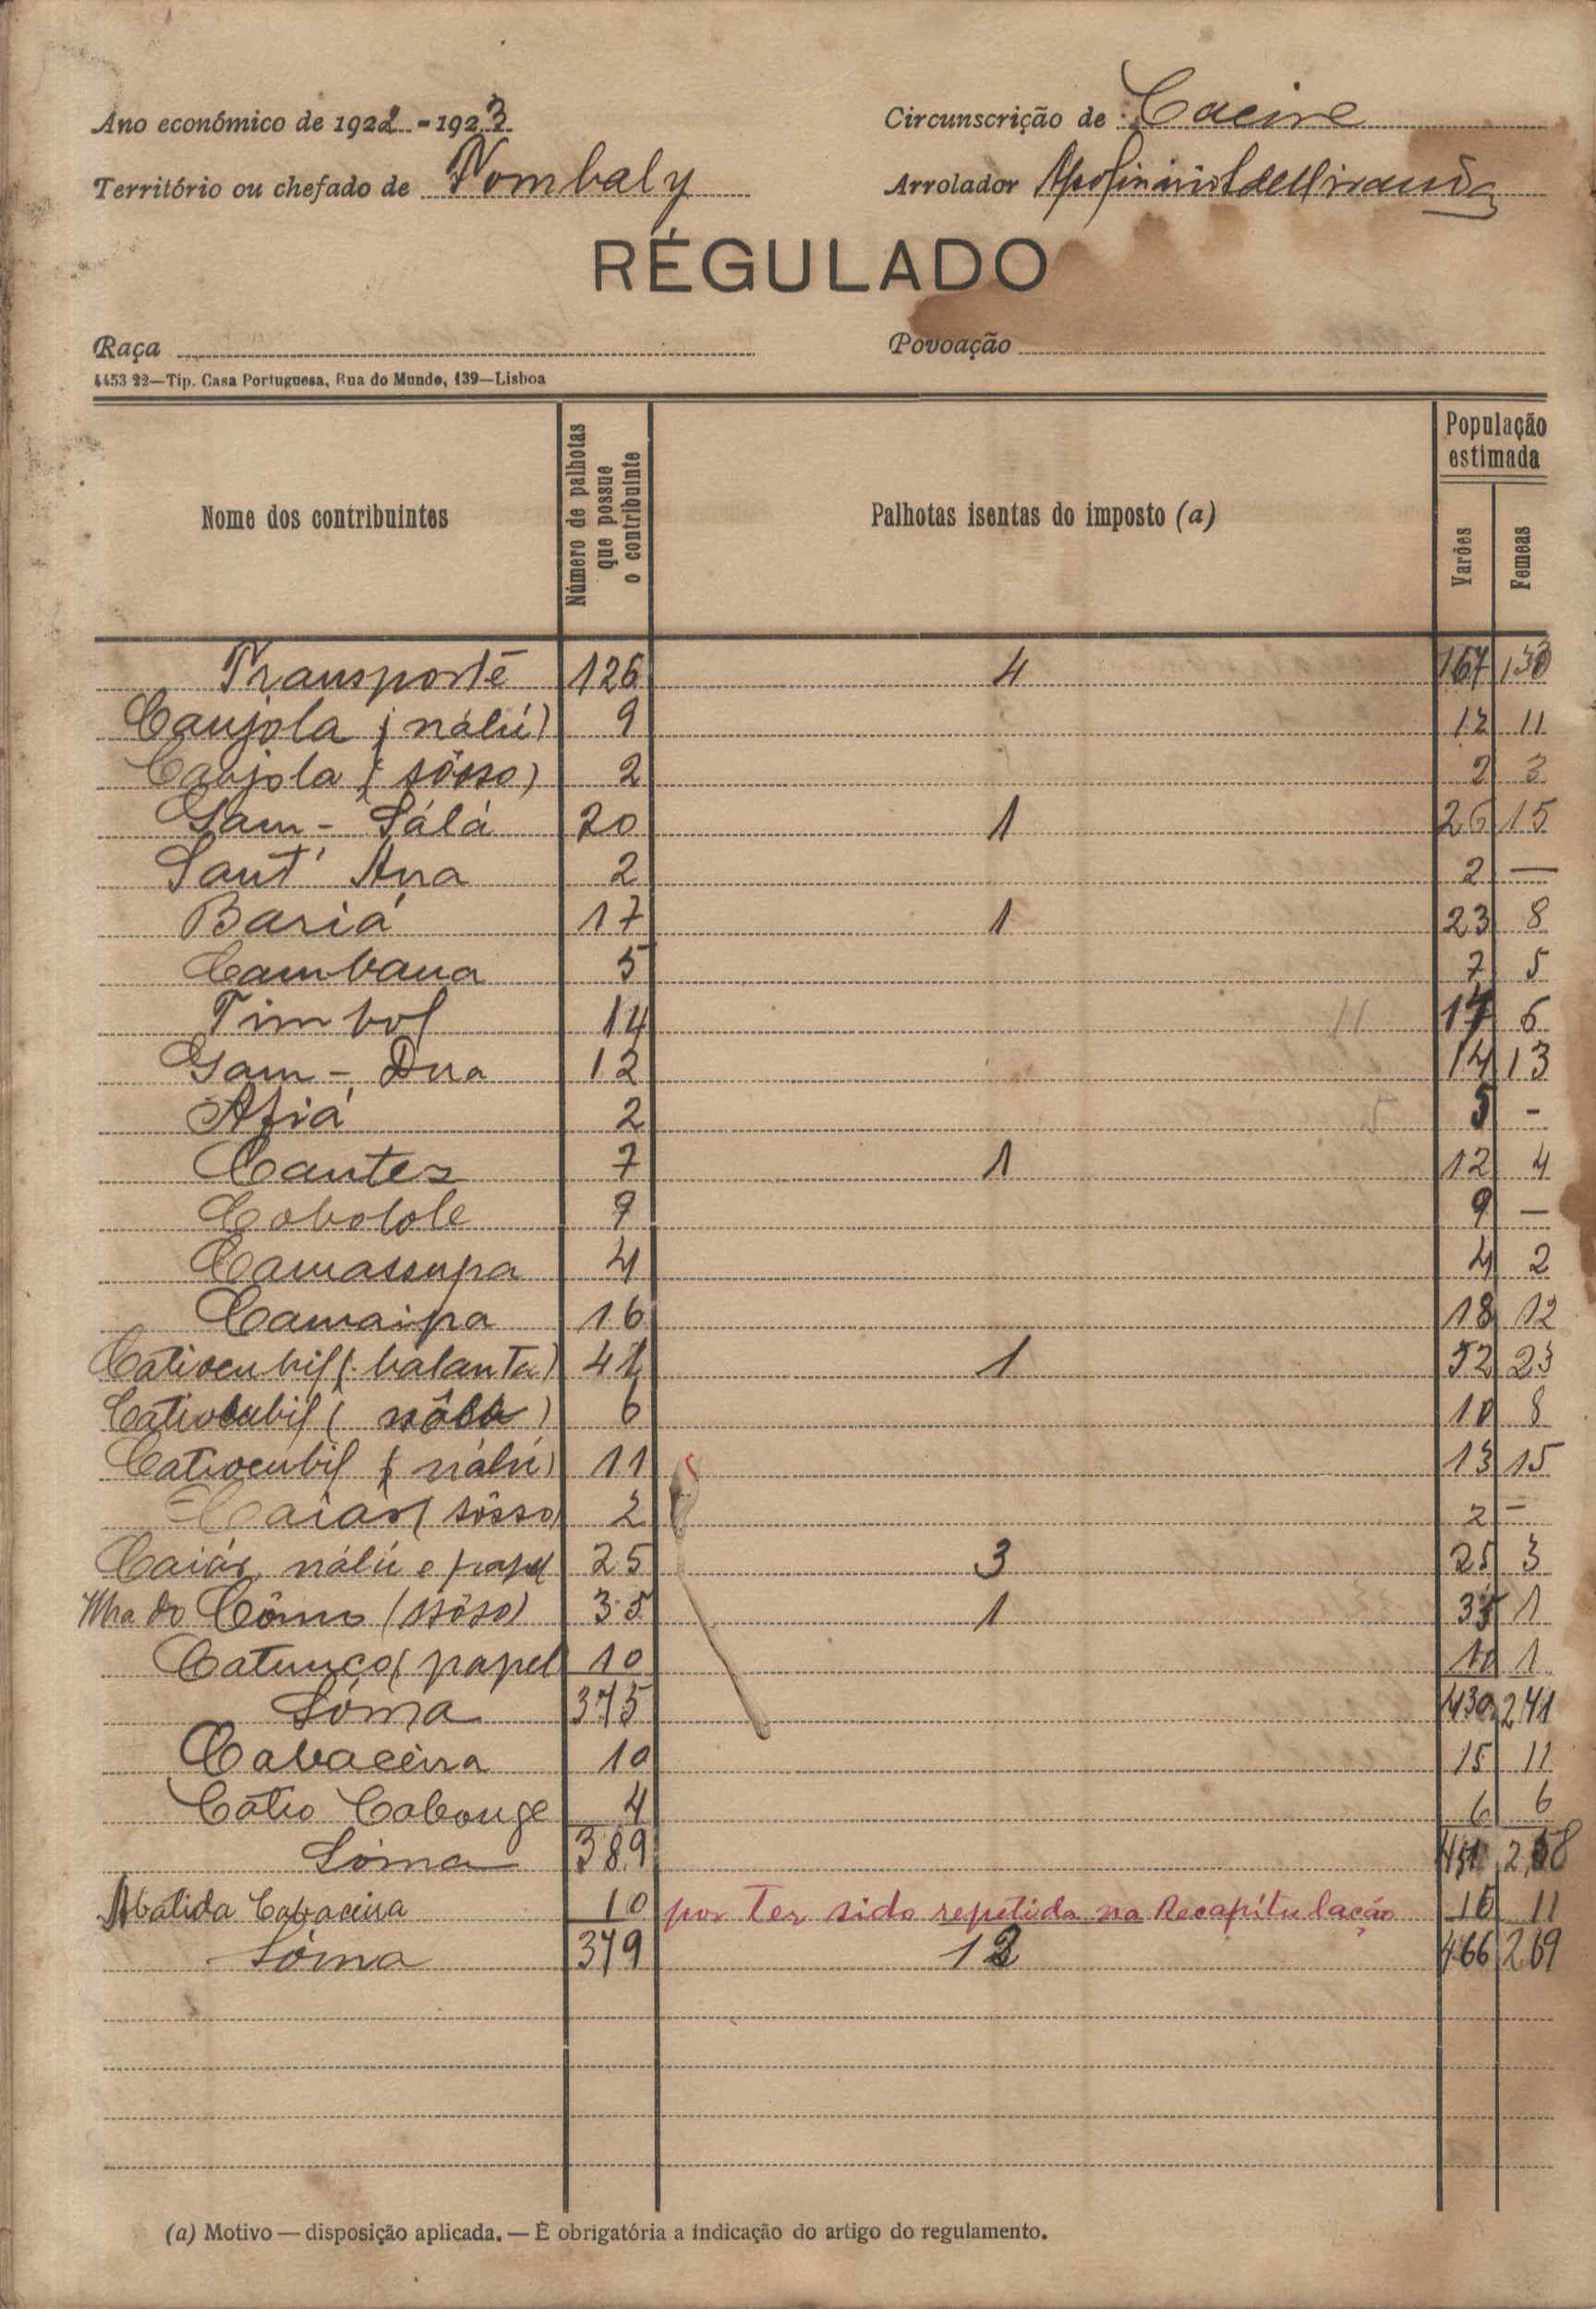 Ano económico de 1922-1923 Circunscrição de Cacine
Território ou chefado de Tombaly Arrolador
RÉGULADO
Raça Povoação
4453 22—Tip. Casa Portuguesa, Rua do Mundo, 139—Lisboa
Nome dos contribuintes Número de palhotas que possue o contribuinte Palhotas isentas do imposto (a) População estimada Varões Femeas
Transporte 126 4 167 130
Caujola (nálú) 9 12 11
Caujola (sôsso) 2 2 3
Gam-Sálá 20 1 26 15
Sant'Ana 2 2 —
Bariá 17 1 23 8
Cambaua 5 7 5
Timbol 14 17 6
Gam-Dua 12 14 13
Afiá 2 5 -
Cantez 7 1 12 4
Cobolole 9 9 —
Camassupa 4 4 2
Camaipa 16 18 12
Catiocubil (balanta) 41 1 52 23
Catiocubil ( ) 6 10 8
Catiocubil (nálú) 11 13 15
Caiar (sôsso 2 2 —
Caiár nálú e papel 25 3 25 3
Ilha do Cômo (sôso) 35 1 35 1
Catunco (papel 10 10 1
Sôma 375 430 241
Cabaceira 10 15 11
Catio Cabouge 4 6 6
Sôma 389 451 258
Abatida Cabaceira 10 por ter sido repetida na Recapitulação 15 11
Sôma 379 12 466 269
(a) Motivo — disposição aplicada. — É obrigatória a indicação do artigo do regulamento.